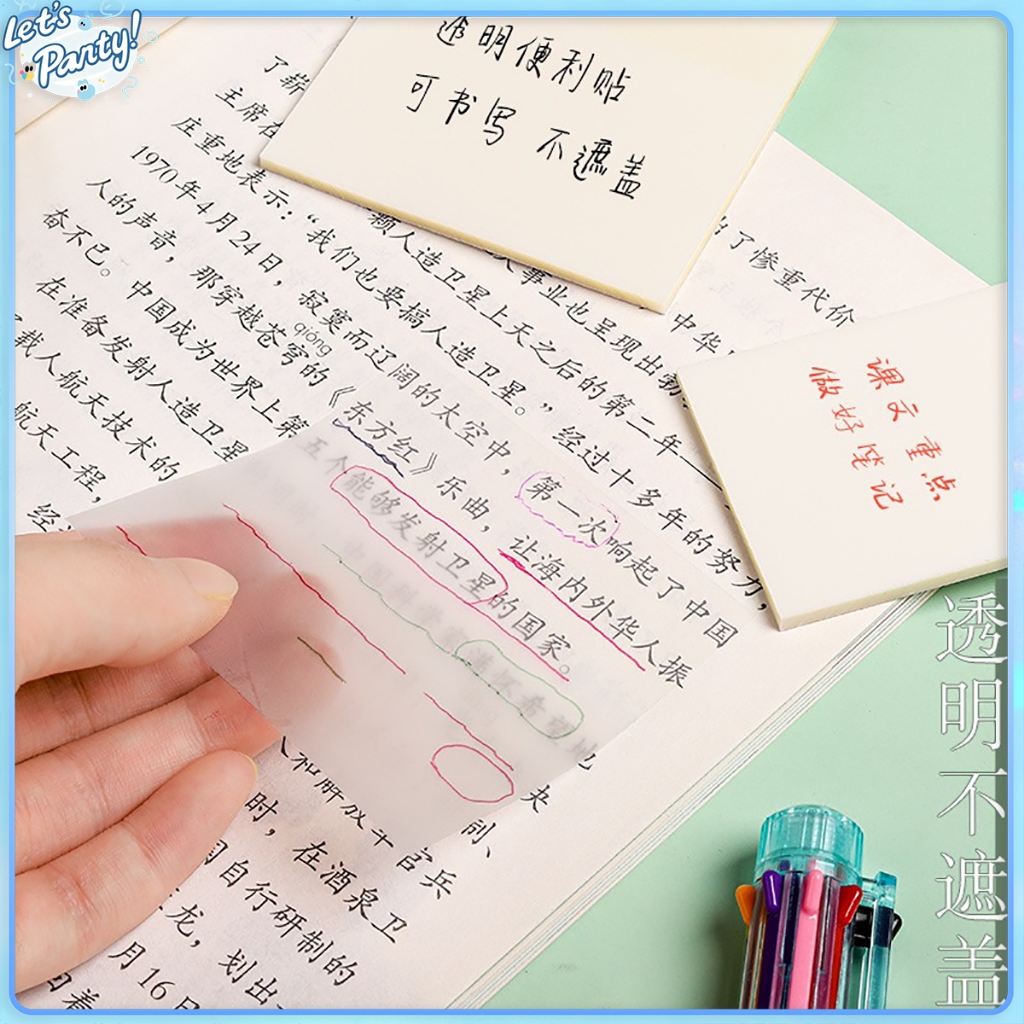 Let's
Party!
透明便利贴
可书写 不遮盖
课文重点
做好笔记
了惨重代价
中华
事业也呈现出
主席在
颗人造卫星上天之后的第二年——
庄重地表示：“我们也要搞人造卫星。”经过十多年的努力，
1970年4月24日，寂寞而辽阔的太空中，第一次响起了中国
qióng
人的声音，那穿越苍穹的《东方红》乐曲，让海内外华人振
奋不已。中国成为世界上第五个能够发射卫星的国家。
在准备发射人造卫星
载人航天技术的
航天工程，
官兵
时，在酒泉卫
国自行研制的
龙，划出
月16日
透明不遮盖